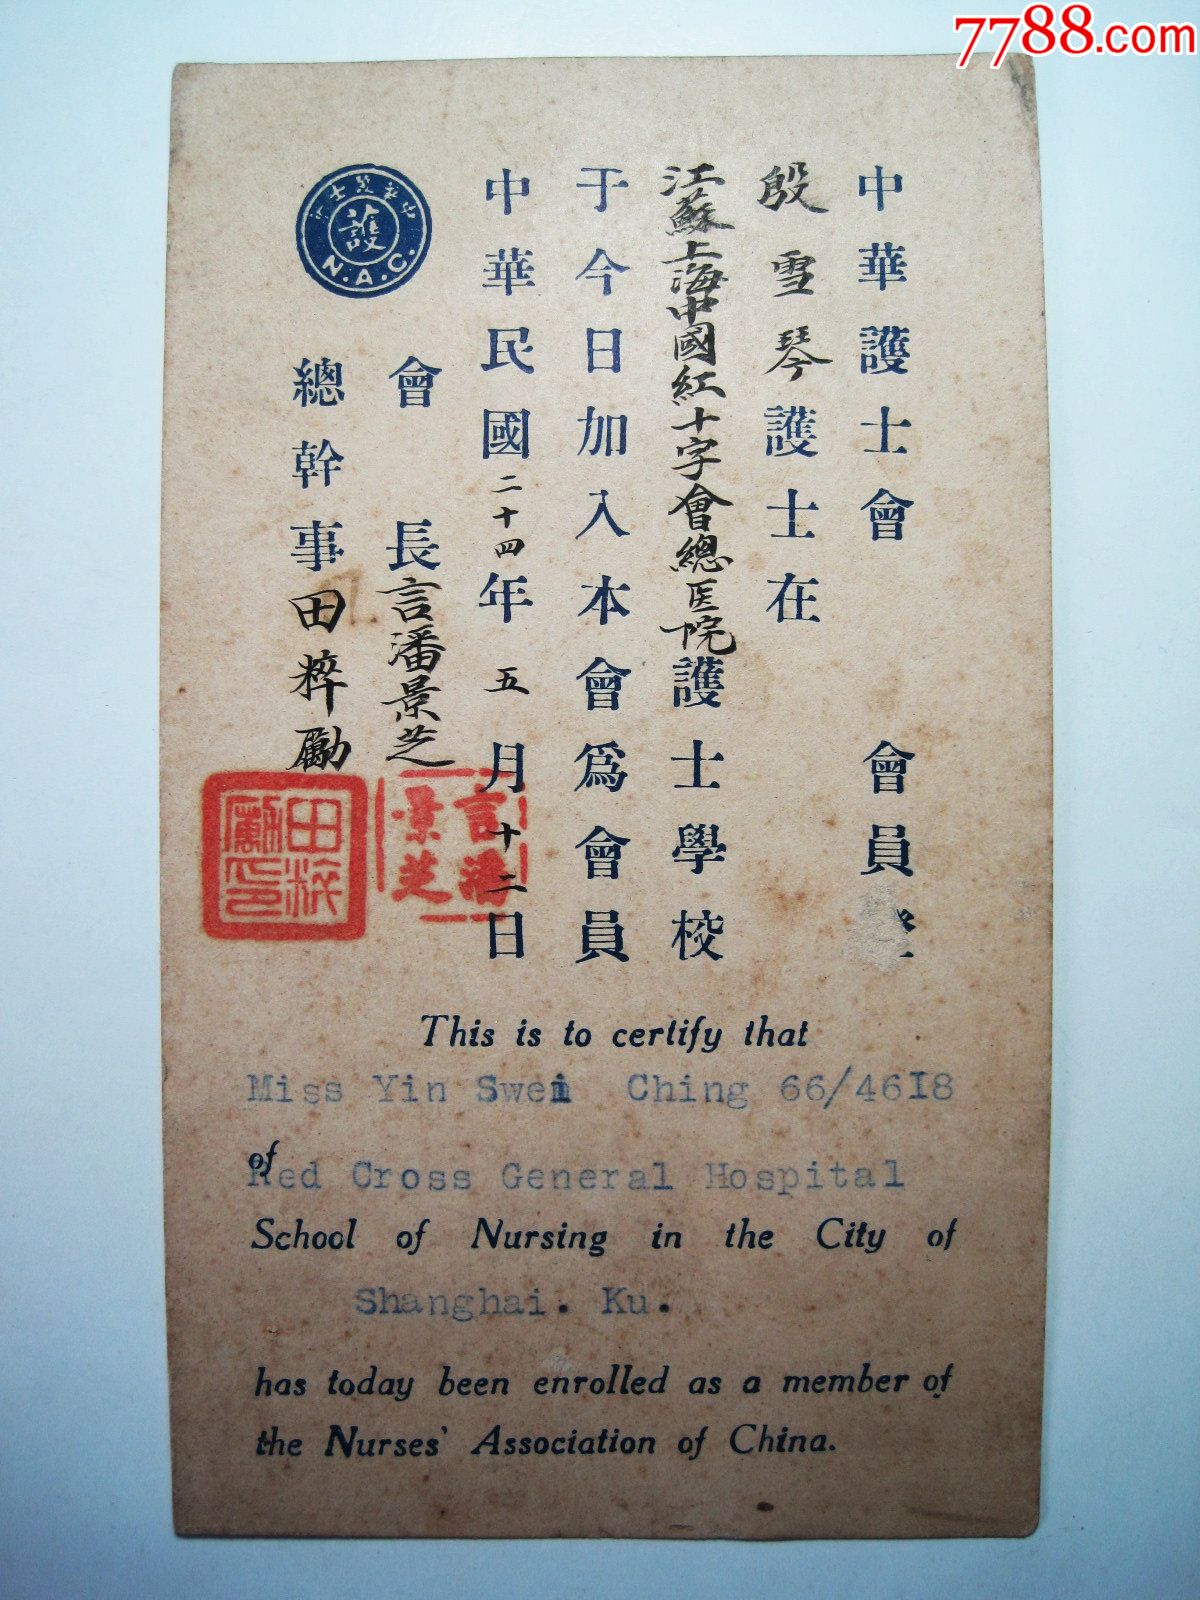 7788.com
中華護士會 會員證
殷雪琴護士在
江蘇上海中國紅十字會總医院護士學校
于今日加入本會為會員
中華民國二十四年五月十二日
會長言潘景芝
總幹事田粹勵
中華護士會
護
N.A.C.
言潘景芝
田粹勵印
This is to certify that
Miss Yin Swei Ching 66/4618
of
Red Cross General Hospital
School of Nursing in the City of
Shanghai. Ku.
has today been enrolled as a member of
the Nurses' Association of China.